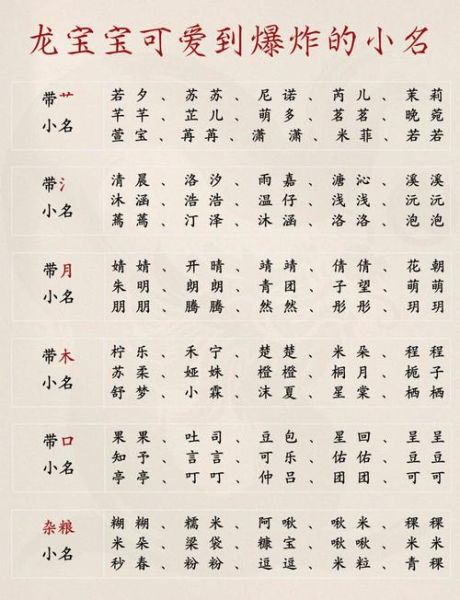 龙宝宝可爱到爆炸的小名
带艹
小名
若夕、苏苏、尼诺、芮儿、茉莉
芊芊、芷儿、萌多、茗茗、晚菀
萱宝、苒苒、潇潇、米菲、若若
带氵
小名
清晨、洛汐、雨嘉、溏沁、溪溪
沐涵、浩浩、温仔、浅浅、沅沅
蔫蔫、汀泽、沐涵、洛洛、泡泡
带月
小名
婧婧、开晴、靖靖、倩倩、花朝
朱明、朗朗、青团、子望、萌萌
朋朋、腾腾、然然、彤彤、玥玥
带木
小名
柠乐、禾宁、楚楚、米朵、程程
苏柔、娅姝、橙橙、桐月、栀子
舒梦、小霖、沫夏、星棠、栖栖
带口
小名
果果、吐司、豆包、星回、呈呈
知予、言言、可乐、佑佑、豆豆
亭亭、叮叮、仲吕、团团、可可
杂粮
小名
糊糊、糯米、阿啾、啾米、稞稞
米朵、梁袋、糠宝、啾啾、米米
秒春、粉粉、逗逗、米粒、青稞